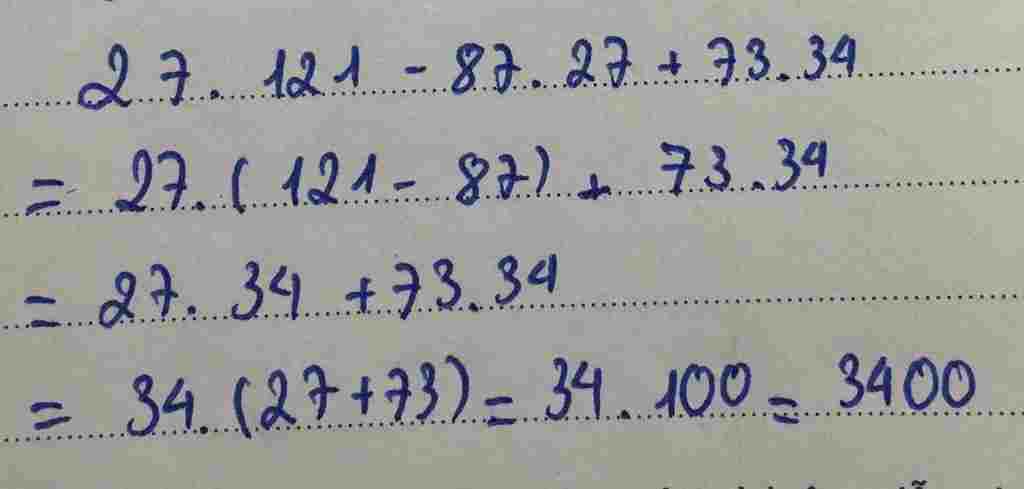 27. 121 - 87.27 + 73.34
= 27.(121 - 87) + 73.34
= 27. 34 + 73.34
= 34.(27+73) = 34.100 = 3400